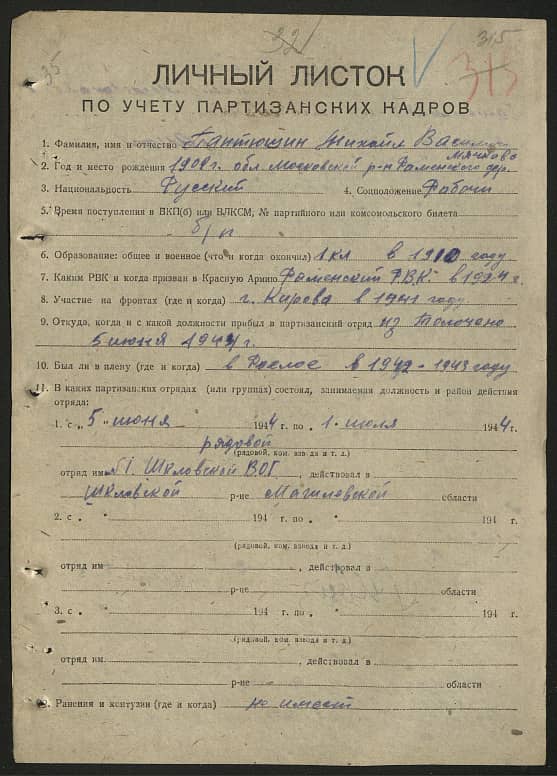 315
35
ЛИЧНЫЙ ЛИСТОК
ПО УЧЕТУ ПАРТИЗАНСКИХ КАДРОВ
1. Фамилия, имя и отчество Пантюшин Михаил
Мячково
2. Год и место рождения 1908 г. обл. Московской р-н Раменского дер.
3. Национальность Русский 4. Соцположение Рабочи
5. Время поступления в ВКП(б) или ВЛКСМ, № партийного или комсомольского билета
б/п
6. Образование: общее и военное (что и когда окончил) 1 кл в году
7. Каким РВК и когда призван в Красную Армию Раменский РВК в г.
8. Участие на фронтах (где и когда) г. Кирова в 1941 году
9. Откуда, когда и с какой должности прибыл в партизанский отряд из
5 июня 1944 г.
10. Был ли в плену (где и когда) в в 1942-1943 году
11. В каких партизанских отрядах (или группах) состоял, занимаемая должность и район действия
отряда:
1. с „5" июня 1944 г. по „1" июля 1944 г.
рядовой
(рядовой, ком. взвода и т. д.)
отряд им. №1. Шкловской В.О.Г, действовал в
Шкловской р-не Могилевской области
2. с „ " 194 г. по „ " 194 г.
(рядовой, ком. взвода и т. д.)
отряд им. , действовал в
р-не области
3. с „ " 194 г. по „ " 194 г.
(рядовой, ком. взвода и т. д.)
отряд им. , действовал в
р-не области
12. Ранения и контузии (где и когда) не имеет